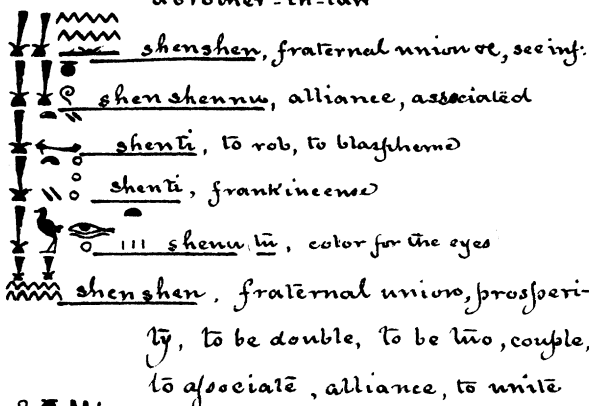 a brother-in-law
shenshen, fraternal union &c, see inf:
shenshennu, alliance, associated
shenti, to rob, to blaspheme
shenti, frankincense
shenu tu, color for the eyes
shenshen, fraternal union, prosperi-
ty, to be double, to be two, couple,
to associate, alliance, to unite